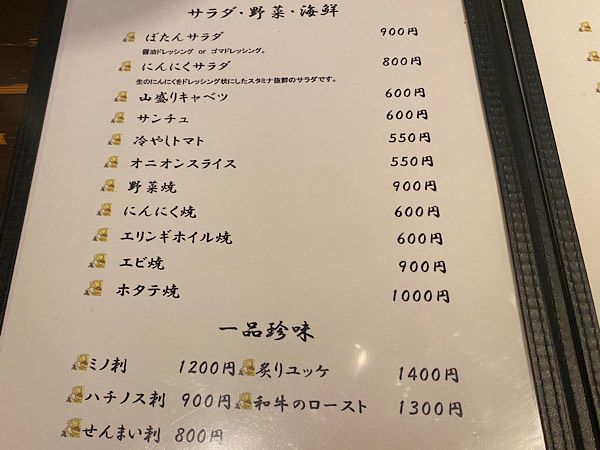 サラダ・野菜・海鮮
ぼたんサラダ 900円
醤油ドレッシング or ゴマドレッシング。
にんにくサラダ 800円
生のにんにくをドレッシング状にしたスタミナ抜群のサラダです。
山盛りキャベツ 600円
サンチュ 600円
冷やしトマト 550円
オニオンスライス 550円
野菜焼 900円
にんにく焼 600円
エリンギホイル焼 600円
エビ焼 900円
ホタテ焼 1000円
一品珍味
ミノ刺 1200円 炙りユッケ 1400円
ハチノス刺 900円 和牛のロースト 1300円
せんまい刺 800円